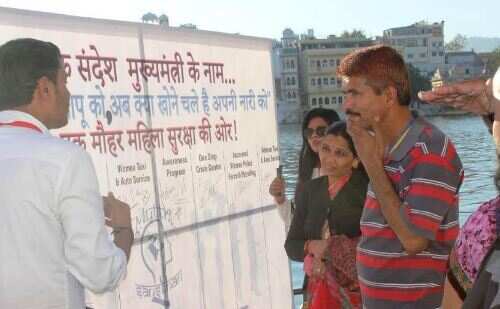 क संदेश मुख्यमंत्री के नाम...
पू को, अब क्या खोने चले है अपनी नारी को"
क मौहर महिला सुरक्षा की ओर!
Women Taxi & Auto Service
Awareness Program
One Stop Crisis Centre
Increased Women Police Force & Patroling
& Auto Service